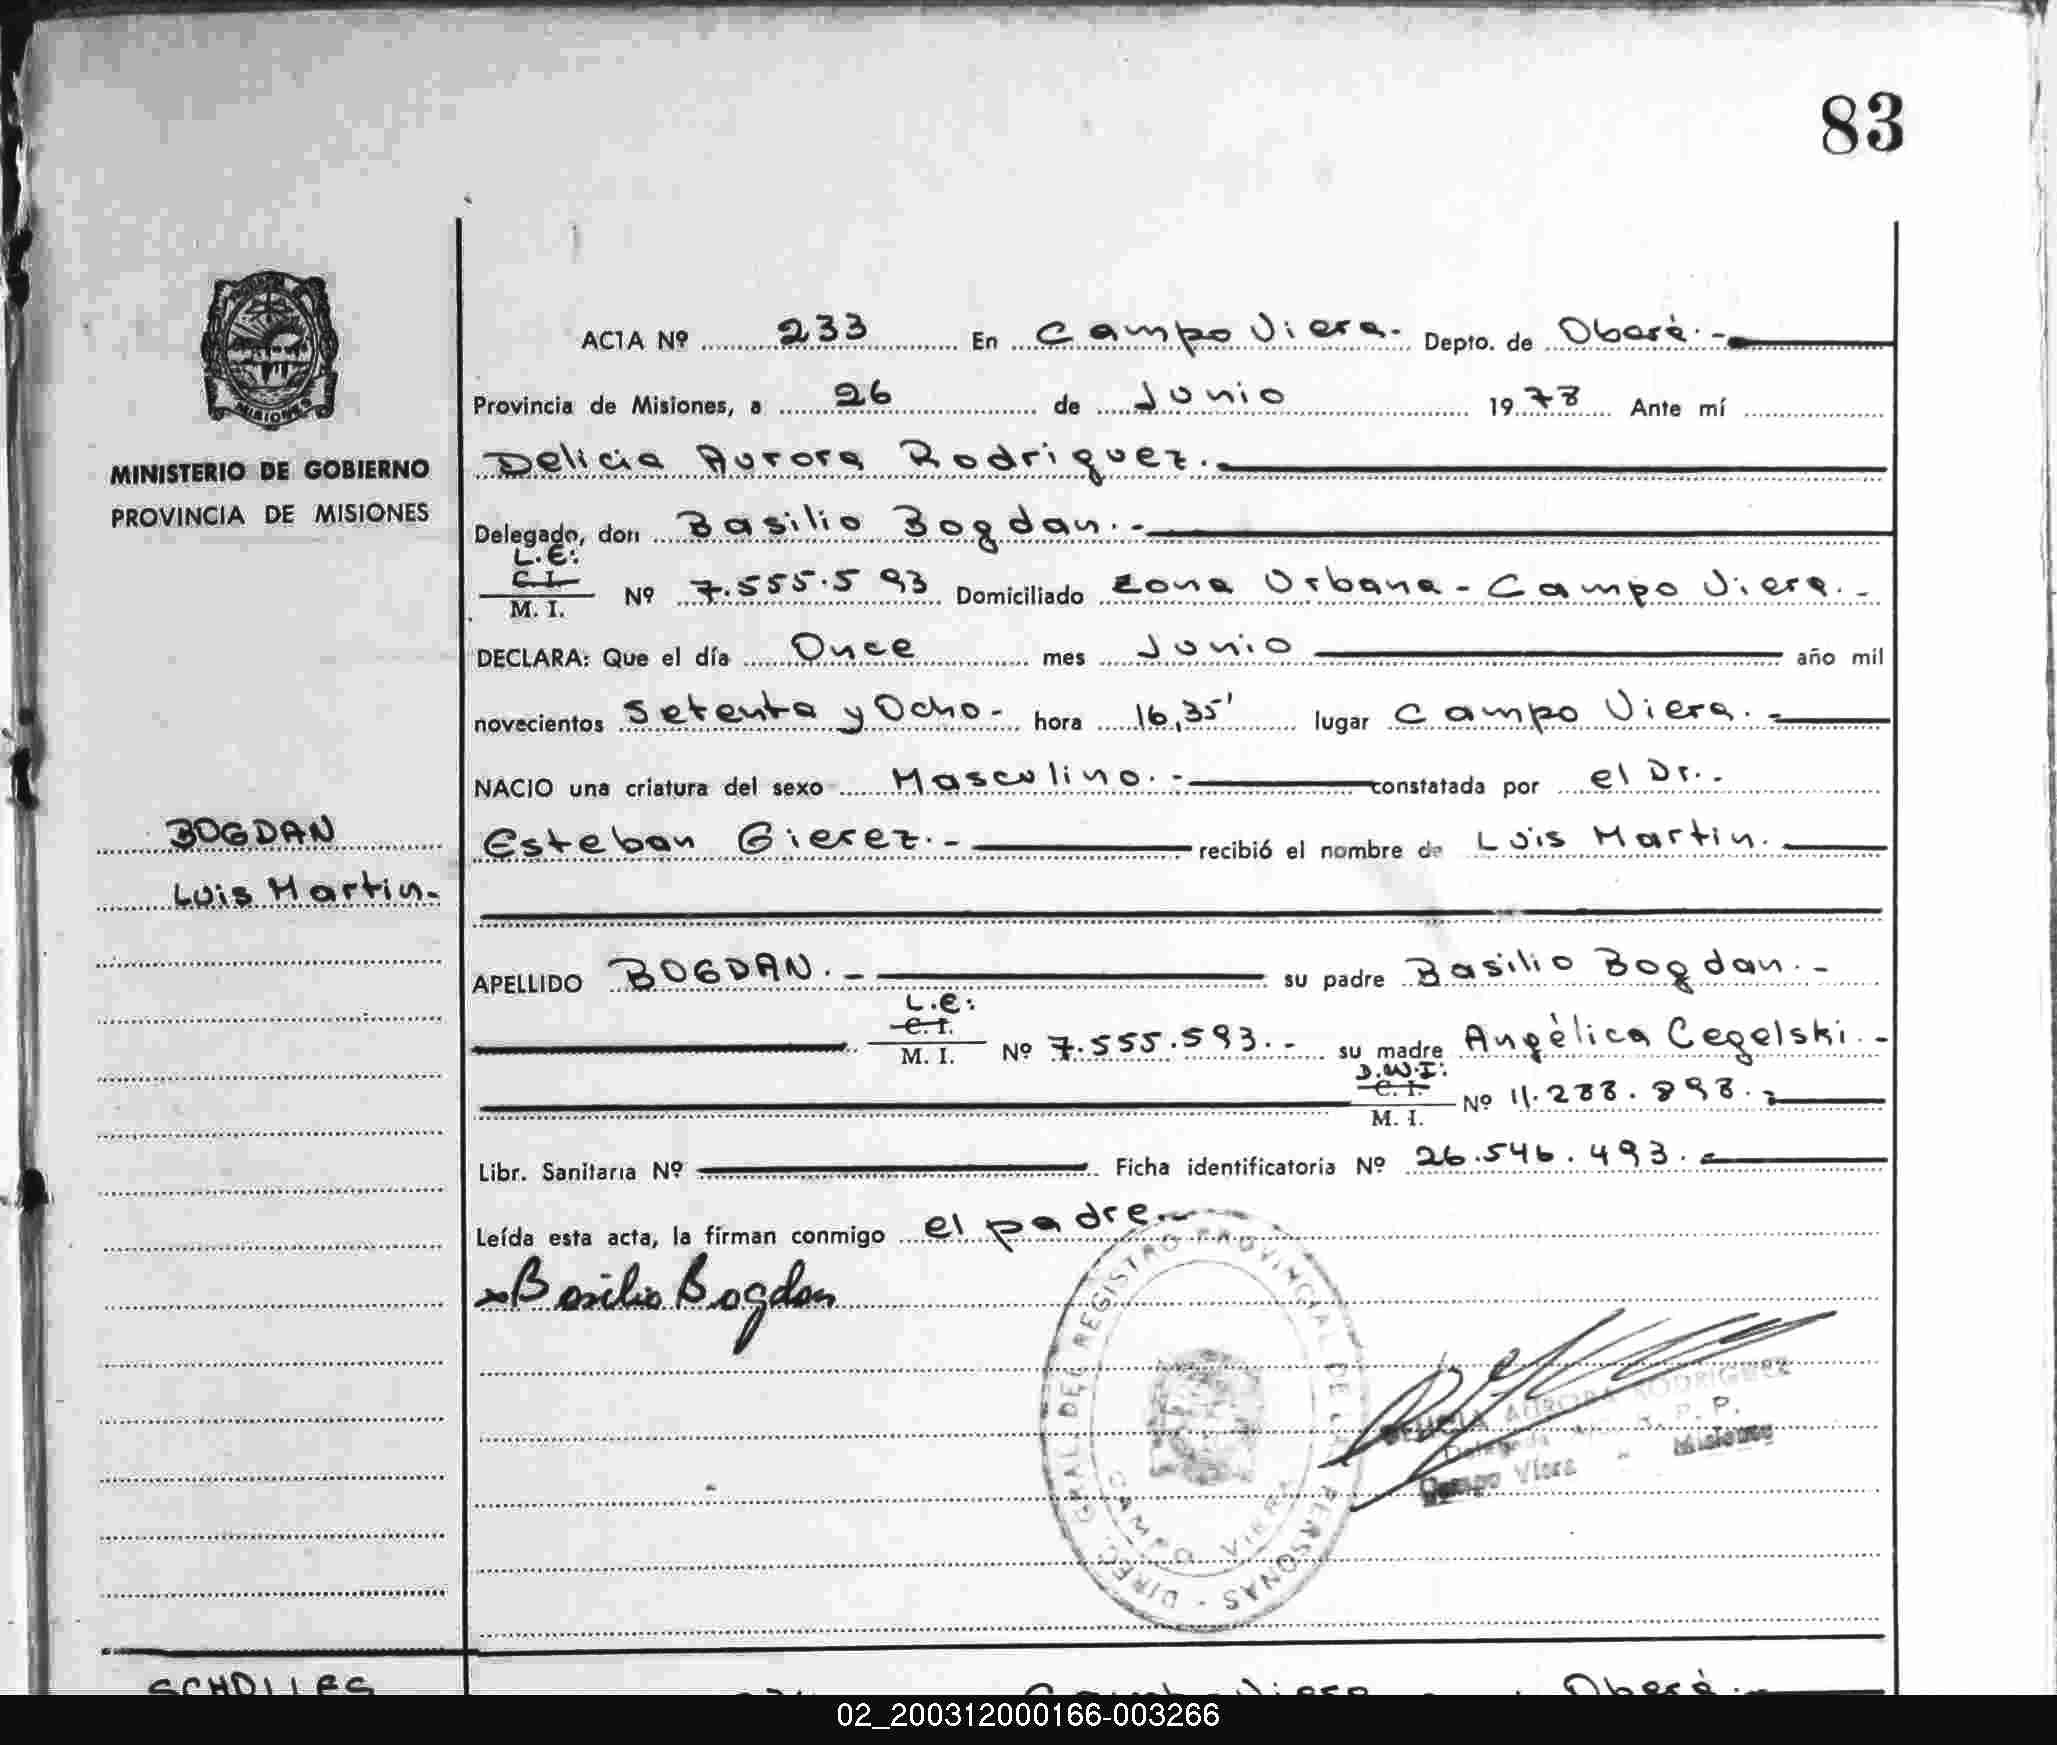 83
ACTA Nº 233 En Campo Viera.- Depto. de Oberá.-
Provincia de Misiones, a 26 de Junio 1978 Ante mí
Delicia Aurora Rodriguez.
Delegado, don Basilio Bogdan.-
L.E:
C. I.
M. I. Nº 7.555.593 Domiciliado Zona Urbana - Campo Viera.-
DECLARA: Que el día Once mes Junio año mil
novecientos Setenta y Ocho- hora 16,35' lugar Campo Viera.-
NACIO una criatura del sexo Masculino.- constatada por el Dr..
Esteban Gierez.- recibió el nombre de Luis Martin.
APELLIDO BOGDAN.- su padre Basilio Bogdan.-
L.e:
C. I.
M. I. Nº 7.555.593.- su madre Angèlica Cegelski.-
D.N.I:
C. I.
M. I. Nº 11.288.898.-
Libr. Sanitaria Nº Ficha identificatoria Nº 26.546.493.-
Leída esta acta, la firman conmigo el padre.-
Basilio Bogdan
MISIONES
MINISTERIO DE GOBIERNO
PROVINCIA DE MISIONES
BOGDAN
Luis Martin.
DIREC. GRAL. DEL REGISTRO PROVINCIAL DE L PERSONAS -
CAMPO VIERA
DELICIA AURORA RODRIGUEZ
Delegada R. P. P.
Campo Viera - Misiones
SCHOLLES
Campo Viera Oberá.-
02_200312000166-003266